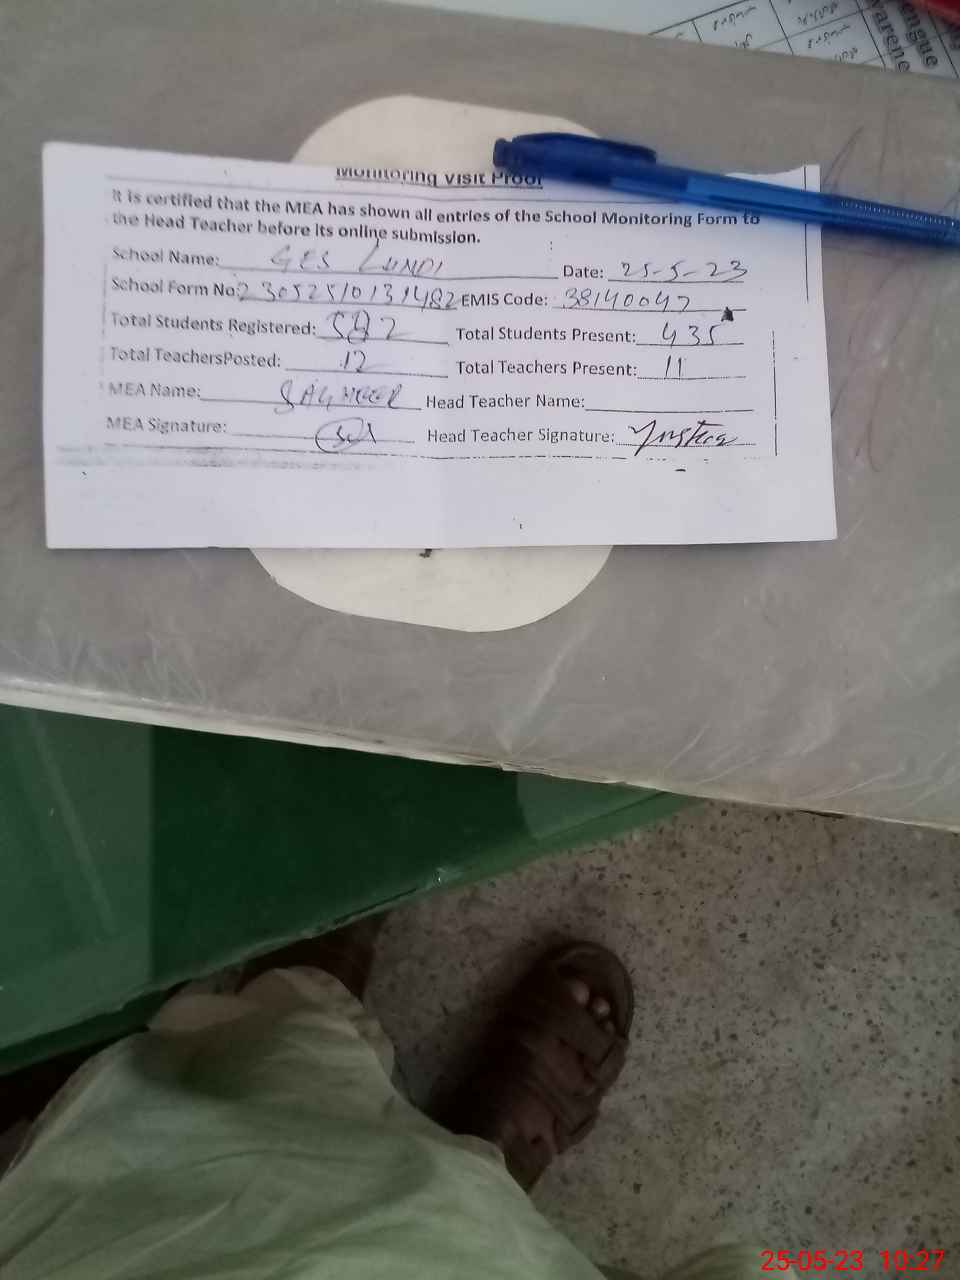 engue
warene
Monitoring Visit Proof
It is certified that the MEA has shown all entries of the School Monitoring Form to
the Head Teacher before its online submission.
School Name: GES LUNDI Date: 25-5-23
School Form No: 23052510131482 EMIS Code: 38140047
Total Students Registered: 582 Total Students Present: 435
Total TeachersPosted: 12 Total Teachers Present: 11
MEA Name: Head Teacher Name:
MEA Signature: Head Teacher Signature:
25-05-23 10:27